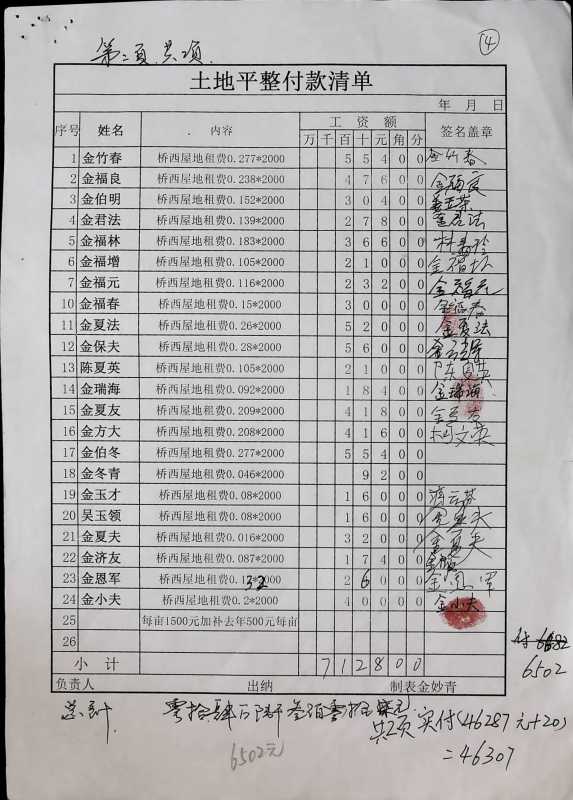 ④
第二页 共2页
土地平整付款清单
年 月 日
序号 姓名 内容 工 资 额 签名盖章
万 千 百 十 元 角 分
1 金竹春 桥西屋地租费0.277*2000 5 5 4 0 0 金竹春
2 金福良 桥西屋地租费0.238*2000 4 7 6 0 0
3 金伯明 桥西屋地租费0.152*2000 3 0 4 0 0
4 金君法 桥西屋地租费0.139*2000 2 7 8 0 0 金君法
5 金福林 桥西屋地租费0.183*2000 3 6 6 0 0
6 金福增 桥西屋地租费0.105*2000 2 1 0 0 0
7 金福元 桥西屋地租费0.116*2000 2 3 2 0 0 金福元
10 金福春 桥西屋地租费0.15*2000 3 0 0 0 0 金福春
11 金夏法 桥西屋地租费0.26*2000 5 2 0 0 0 金夏法
12 金保夫 桥西屋地租费0.28*2000 5 6 0 0 0
13 陈夏英 桥西屋地租费0.105*2000 2 1 0 0 0 陈夏英
14 金瑞海 桥西屋地租费0.092*2000 1 8 4 0 0 金瑞海
15 金夏友 桥西屋地租费0.209*2000 4 1 8 0 0 金夏友
16 金方大 桥西屋地租费0.208*2000 4 1 6 0 0
17 金伯冬 桥西屋地租费0.277*2000 5 5 4 0 0
18 金冬青 桥西屋地租费0.046*2000 9 2 0 0
19 金玉才 桥西屋地租费0.08*2000 1 6 0 0 0
20 吴玉领 桥西屋地租费0.08*2000 1 6 0 0 0
21 金夏夫 桥西屋地租费0.016*2000 3 2 0 0 金夏夫
22 金济友 桥西屋地租费0.087*2000 1 7 4 0 0
23 金恩军 桥西屋地租费0.132*2000 2 6 0 0 金恩军
24 金小夫 桥西屋地租费0.2*2000 4 0 0 0 0 金小夫
25 每亩1500元加补去年500元每亩
26
小 计 7 1 2 8 0 0
6502
负责人 出纳 制表金妙青
总计
共2页 实付(46287元+20)
=46307
6502元